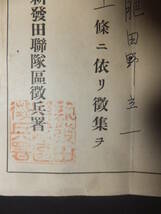 肥田野
條ニ依リ徴集ヲ
新發田聯隊區徴兵署